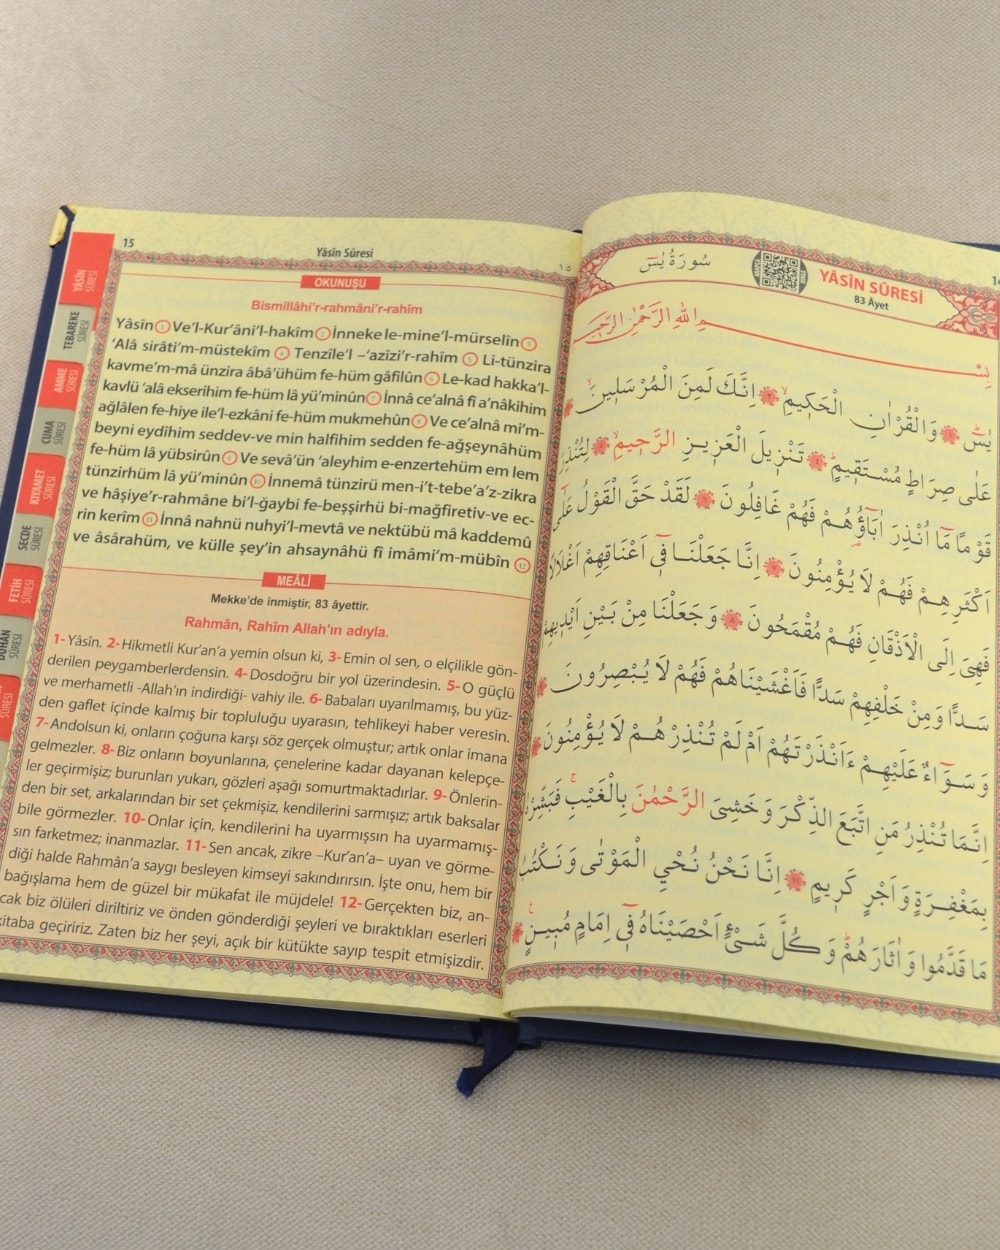 15
Yâsîn Sûresi
OKUNUŞU
Bismillâhi’r-rahmâni’r-rahîm
Yâsîn 1 Ve’l-Kur’âni’l-hakîm 2 İnneke le-mine’l-mürselîn 3
‘Alâ sirâti’m-müstekîm 4 Tenzîle’l –‘azîzi’r-rahîm 5 Li-tünzira
kavme’m-mâ ünzira âbâ’ühüm fe-hüm gâfilûn 6 Le-kad hakka’l-
kavlü ‘alâ ekserihim fe-hüm lâ yü’minûn 7 İnnâ ce’alnâ fî a’nâkihim
ağlâlen fe-hiye ile’l-ezkâni fe-hüm mukmehûn 8 Ve ce’alnâ mi’m-
beyni eydîhim seddev-ve min halfihim sedden fe-ağşeynâhüm
fe-hüm lâ yübsirûn 9 Ve sevâ’ün ‘aleyhim e-enzertehüm em lem
tünzirhüm lâ yü’minûn 10 İnnemâ tünzirü men-i’t-tebe’a’z-zikra
ve hâşiye’r-rahmâne bi’l-ğaybi fe-beşşirhü bi-mağfiretiv-ve ec-
rin kerîm 11 İnnâ nahnü nuhyi’l-mevtâ ve nektübü mâ kaddemû
ve âsârahüm, ve külle şey’in ahsaynâhü fî imâmi’m-mübîn 12
MEÂLİ
Mekke’de inmiştir, 83 âyettir.
Rahmân, Rahîm Allah’ın adıyla.
1- Yâsîn. 2- Hikmetli Kur’an’a yemin olsun ki, 3- Emin ol sen, o elçilikle gön-
derilen peygamberlerdensin. 4- Dosdoğru bir yol üzerindesin. 5- O güçlü
ve merhametli -Allah’ın indirdiği- vahiy ile. 6- Babaları uyarılmamış, bu yüz-
den gaflet içinde kalmış bir topluluğu uyarasın, tehlikeyi haber veresin.
7- Andolsun ki, onların çoğuna karşı söz gerçek olmuştur; artık onlar imana
gelmezler. 8- Biz onların boyunlarına, çenelerine kadar dayanan kelepçe-
ler geçirmişiz; burunları yukarı, gözleri aşağı somurtmaktadırlar. 9- Önlerin-
den bir set, arkalarından bir set çekmişiz, kendilerini sarmışız; artık baksalar
bile görmezler. 10- Onlar için, kendilerini ha uyarmışsın ha uyarmamış-
sın farketmez; inanmazlar. 11- Sen ancak, zikre –Kur’an’a– uyan ve görme-
diği halde Rahmân’a saygı besleyen kimseyi sakındırırsın. İşte onu, hem bir
bağışlama hem de güzel bir mükafat ile müjdele! 12- Gerçekten biz, an-
cak biz ölüleri diriltiriz ve önden gönderdiği şeyleri ve bıraktıkları eserleri
kitaba geçiririz. Zaten biz her şeyi, açık bir kütükte sayıp tespit etmişizdir.
YÂSÎN SÛRESİ
TEBAREKE SÛRESİ
AMME SÛRESİ
CUMA SÛRESİ
KIYAMET SÛRESİ
SECDE SÛRESİ
FETİH SÛRESİ
DUHAN SÛRESİ
SÛRESİ
14
سُورَةُ يٰسٓ
YÂSÎN SÛRESİ
83 Âyet
بِسْمِ اللّٰهِ الرَّحْمٰنِ الرَّح۪يمِ
يٰسٓ ١ وَالْقُرْاٰنِ الْحَك۪يمِ ٢ اِنَّكَ لَمِنَ الْمُرْسَل۪ينَ ٣
عَلٰى صِرَاطٍ مُسْتَق۪يمٍ ٤ تَنْز۪يلَ الْعَز۪يزِ الرَّح۪يمِ ٥ لِتُنْذِرَ
قَوْمًا مَٓا اُنْذِرَ اٰبَٓاؤُ۬هُمْ فَهُمْ غَافِلُونَ ٦ لَقَدْ حَقَّ الْقَوْلُ عَلٰٓى
اَكْثَرِهِمْ فَهُمْ لَا يُؤْمِنُونَ ٧ اِنَّا جَعَلْنَا ف۪ٓي اَعْنَاقِهِمْ اَغْلَالًا
فَهِيَ اِلَى الْاَذْقَانِ فَهُمْ مُقْمَحُونَ ٨ وَجَعَلْنَا مِنْ بَيْنِ اَيْد۪يهِمْ
سَدًّا وَمِنْ خَلْفِهِمْ سَدًّا فَاَغْشَيْنَاهُمْ فَهُمْ لَا يُبْصِرُونَ ٩
وَسَوَٓاءٌ عَلَيْهِمْ ءَاَنْذَرْتَهُمْ اَمْ لَمْ تُنْذِرْهُمْ لَا يُؤْمِنُونَ ١٠
اِنَّمَا تُنْذِرُ مَنِ اتَّبَعَ الذِّكْرَ وَخَشِيَ الرَّحْمٰنَ بِالْغَيْبِۚ فَبَشِّرْهُ
بِمَغْفِرَةٍ وَاَجْرٍ كَر۪يمٍ ١١ اِنَّا نَحْنُ نُحْيِ الْمَوْتٰى وَنَكْتُبُ
مَا قَدَّمُوا وَاٰثَارَهُمْۜ وَكُلَّ شَيْءٍ اَحْصَيْنَاهُ ف۪ٓي اِمَامٍ مُب۪ينٍ ١٢